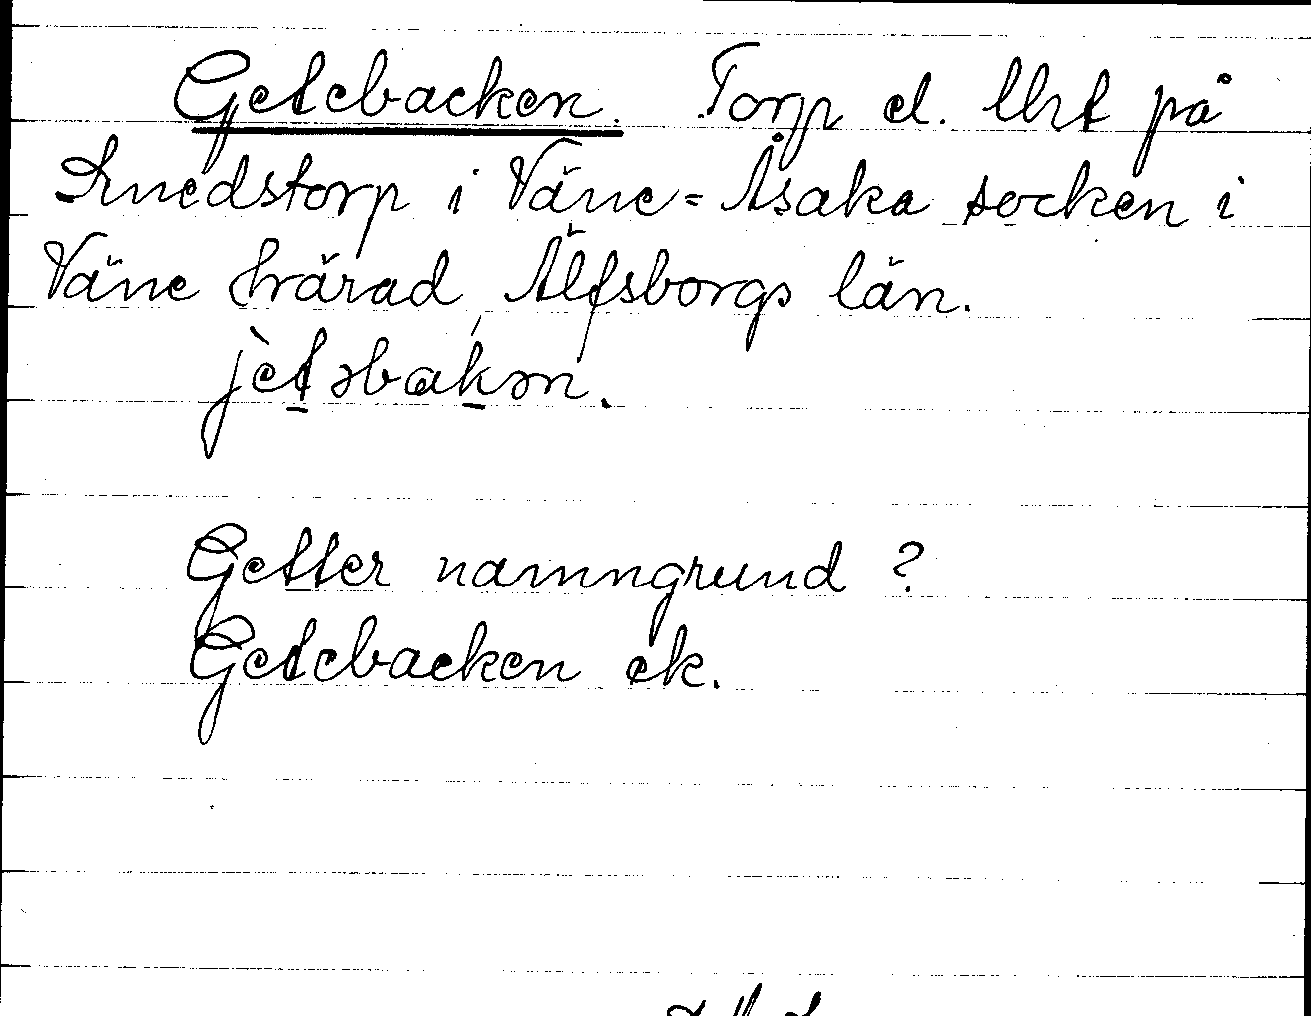 Getebacken. Torp el. lht på
Smedstorp i Väne-Åsaka socken i
Väne härad, Älfsborgs län.
jètəbakən.
Getter namngrund ?
Getebacken ek.